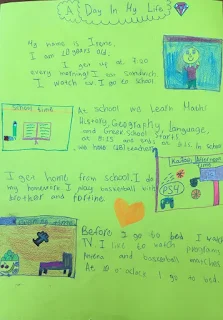 A Day In My Life
My name is Irene,
I am 10 years old.
I get up at 7:50
every morning! I eat sandwich
I watch
I go to school
School time
At school we learn Maths
History, Geography, Language,
and Greek School starts
at 8:15 and ends at
in School
we have
I get home from school, I do
my homework I play basketball with
brother and
time
PS4
time
Before I go to bed I watch
TV. I like to watch programs
and basketball matches
At 10 o'clock I go to bed.